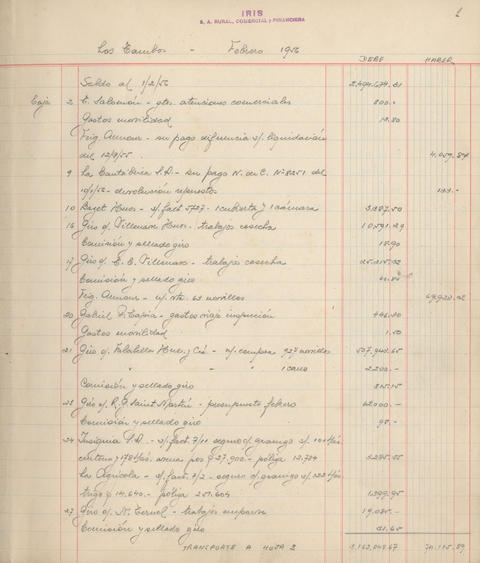 IRIS
S. A. RURAL, COMERCIAL y FINANCIERA
Los Tambos - Febrero 1956
DEBE HABER
Saldo al 1/2/56 2.494.674.21
Caja 2 E. Salomón - gtos. atenciones comerciales 800.-
Gastos movilidad 18.80
Frig. Armour - su pago diferencia s/. liquidación
del 12/9/55. 4.059.87
9 La Cantábrica S.A. - su pago N. de C. Nº 8251 del
10/1/56 - devolución repuestos
10 Hnos. - s/. fact. 5727 - 1 cubierta y 1 cámara 3.287.50
16 Giro o/. Villemur Hnos. - trabajos cosecha 10.591.29
Comisión y sellado giro 18.90
17 Giro o/. E. E. Villemur - trabajos cosecha
Comisión y sellado giro
Frig. Armour - n/. vta. 63 novillos
20 Gabriel P. Tapia - gastos viaje inspección
Gastos movilidad 1.50
21 Giro o/. Hnos. y Cía - n/. compra 927 novillos
" " 1 carro 2.200.-
Comisión y sellado giro 815.15
23 Giro o/. R. J. Saint Martin - presupuesto febrero 62000.-
Comisión y sellado giro 95.-
24 Insignia S.A. - s/. fact. 7/11 seguro c/. granizo s/.
centeno y avena por $ 27.900.- póliza 12.724 5.235.55
La Agrícola - s/. fact. 2/2 - seguro c/. granizo s/.
trigo $ 14.640.- póliza 251.604 1.399.95
27 Giro o/. N. Teruel - trabajos 19.085.-
Comisión y sellado giro 31.65
TRANSPORTE A HOJA 2 3.163.045.67 74.115.89